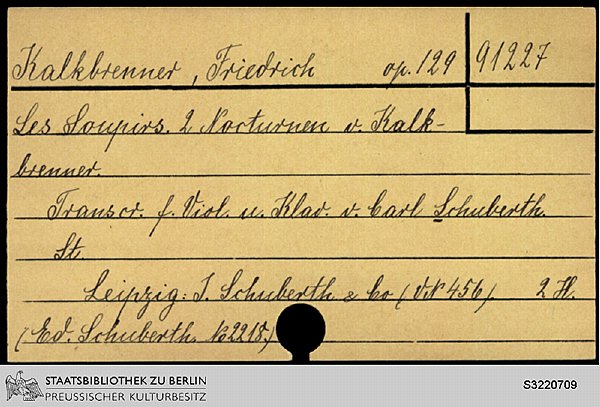 Kalkbrenner, Friedrich op. 129 91227
Les Soupirs. 2 Nocturnen v. Kalk-
brenner.
Transcr. f. Viol. u. Klav. v. Carl Schuberth.
St.
Leipzig: J. Schuberth & Co (VN 456). 2 H.
(Ed. Schuberth. No 2218.)
STAATSBIBLIOTHEK ZU BERLIN
PREUSSISCHER KULTURBESITZ
S3220709